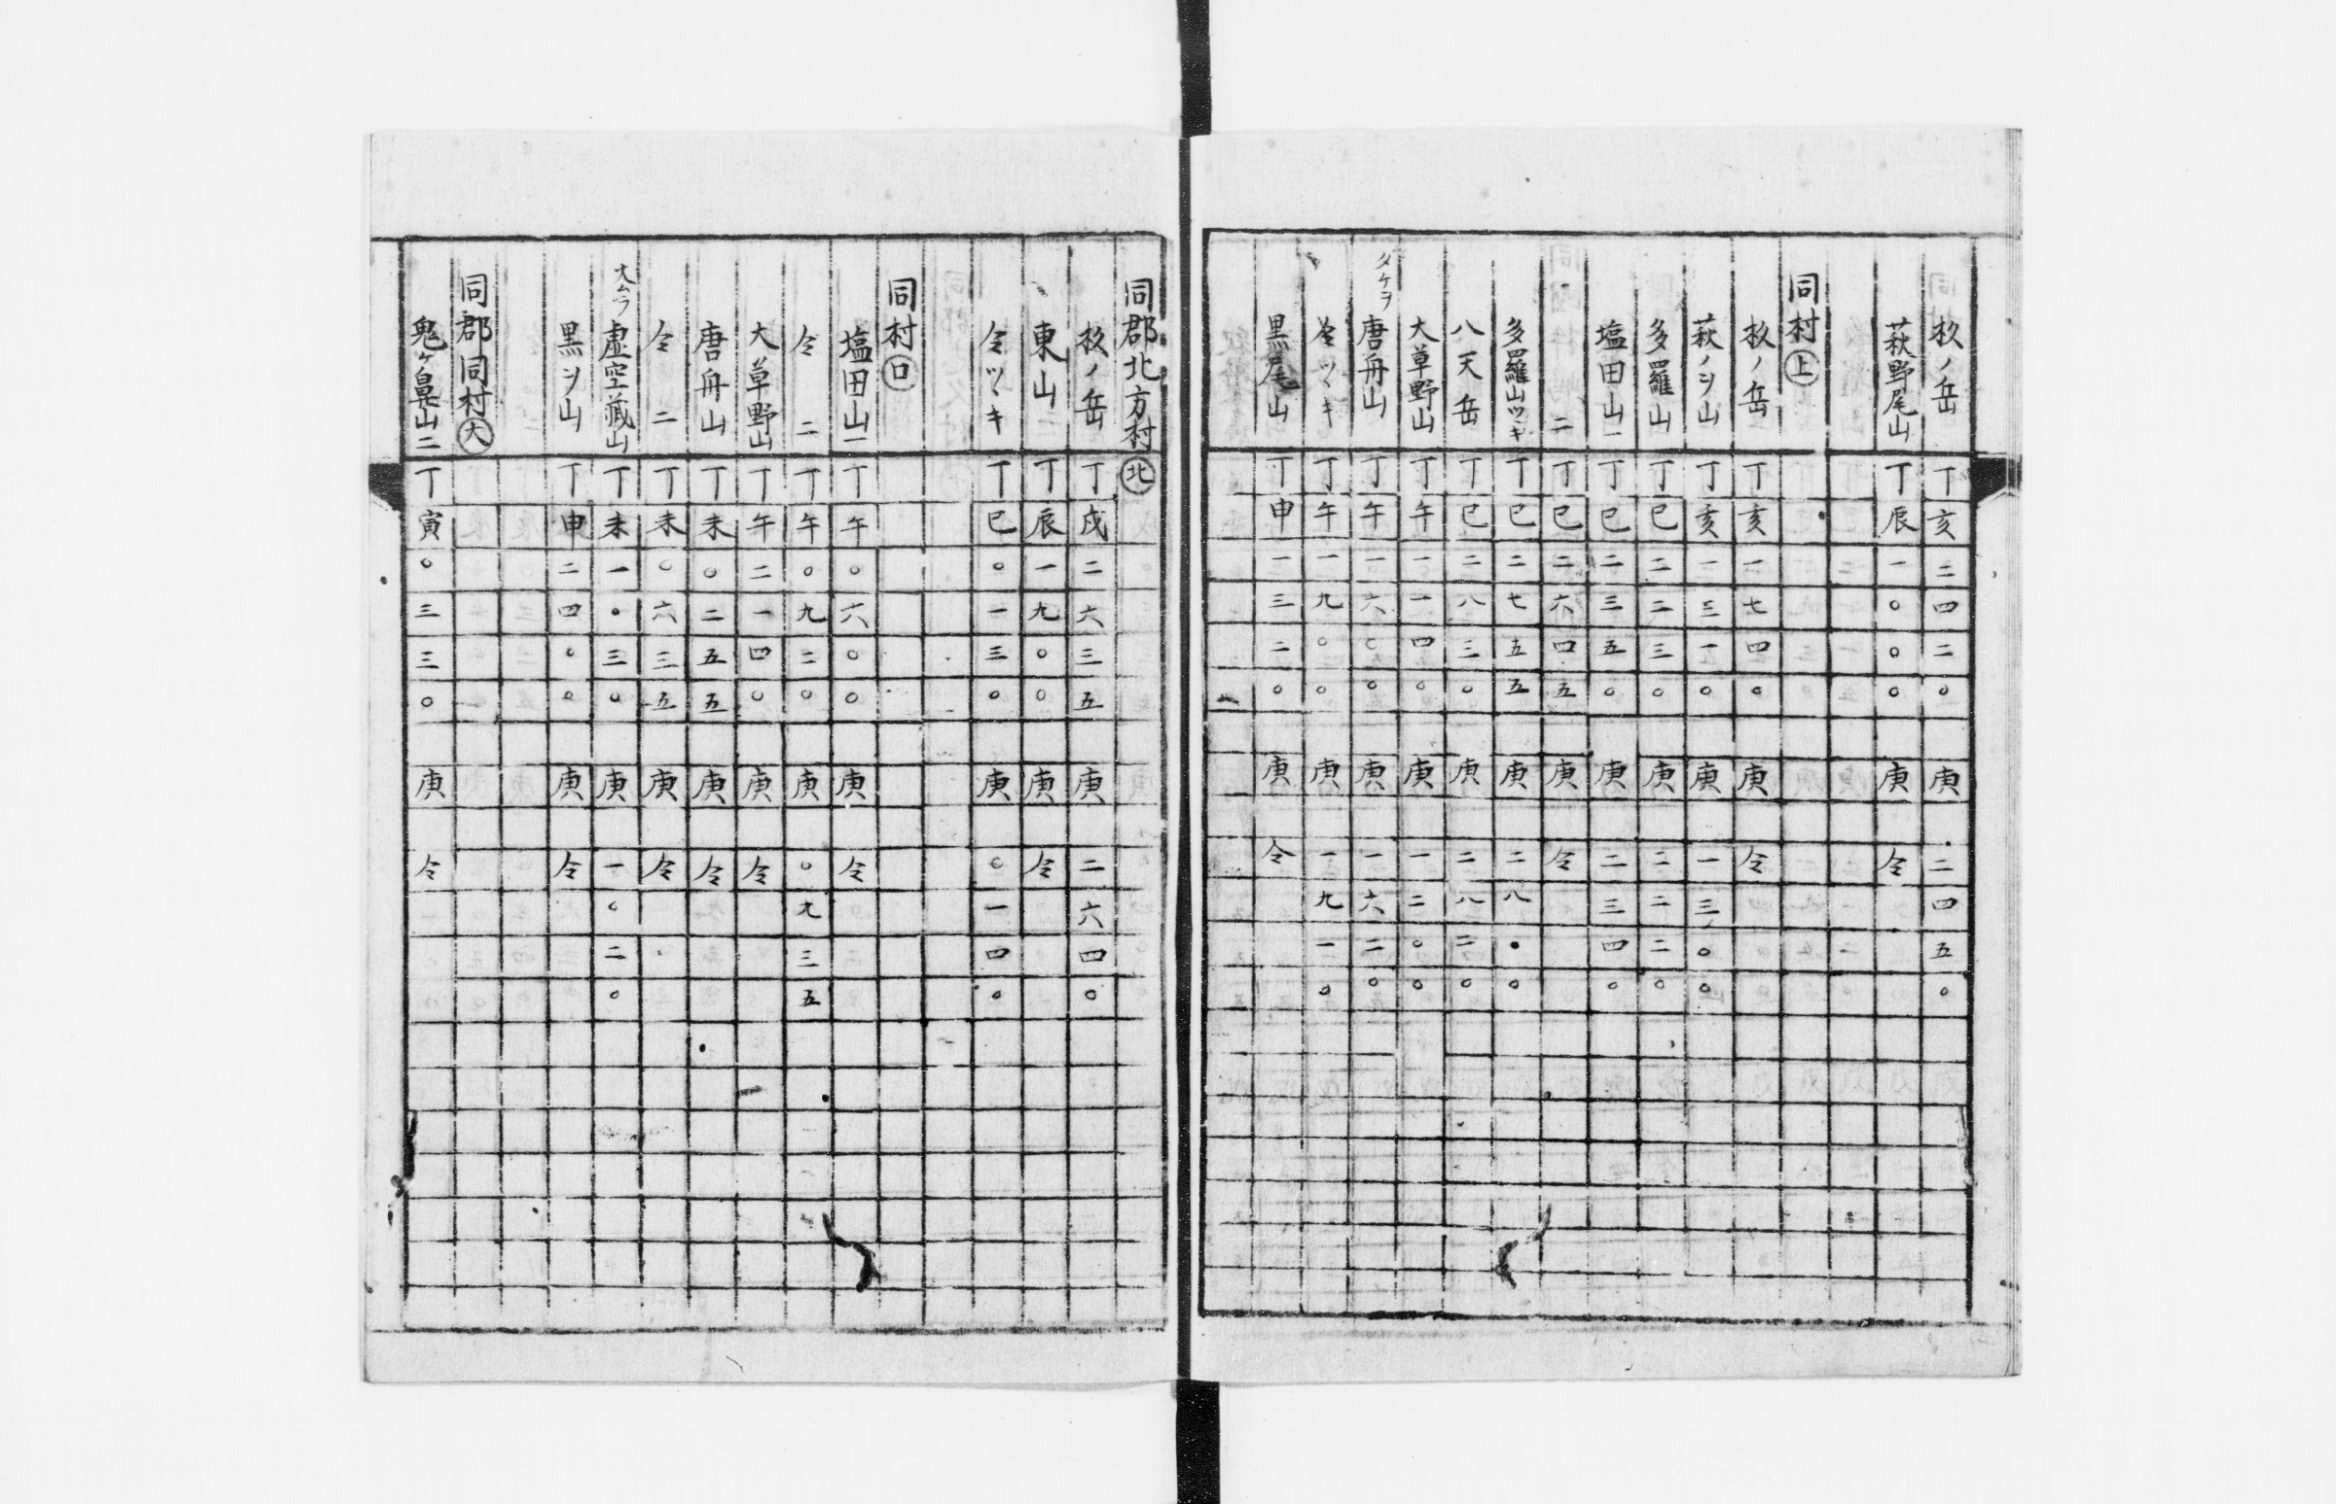 杦ノ岳 丁亥二四二〇 庚 二四五〇
萩野尾山 丁辰一〇〇〇 庚 仝
同村㊤
杦ノ岳 丁亥一七四〇 庚 仝
萩ノヲ山 丁亥一三一〇 庚 一三〇〇
多羅山 丁巳二二三〇 庚 二二二〇
塩田山一 丁巳二三五〇 庚 二三四〇
二 丁巳二六四五 庚 仝
多羅山ツヽキ 丁巳二七五五 庚 二八〇〇
八天岳 丁巳二八三〇 庚 二八二〇
大草野山 丁午一一四〇 庚 一二〇〇
タケヲ 唐舟山 丁午一六〇〇 庚 一六二〇
仝ツヽキ 丁午一九〇〇 庚 一九一〇
黒尾山 丁申一三二〇 庚 仝
同郡北方村 北
杦ノ岳 丁戌二六三五 庚 二六四〇
東山 丁辰一九〇〇 庚 仝
仝ツヽキ 丁巳〇一三〇 庚 〇一四〇
同村 口
塩田山一 丁午〇六〇〇 庚 仝
仝 二 丁午〇九二〇 庚 〇九三五
大草野山 丁午二一四〇 庚 仝
唐舟山 丁未〇二五五 庚 仝
仝 二 丁未〇六三五 庚 仝
大ムラ 虚空蔵山 丁未一〇三〇 庚 一〇二〇
黒ヲ山 丁申二四〇〇 庚 仝
同郡同村 大
鬼ヶ鼻山二 丁寅〇三三〇 庚 仝